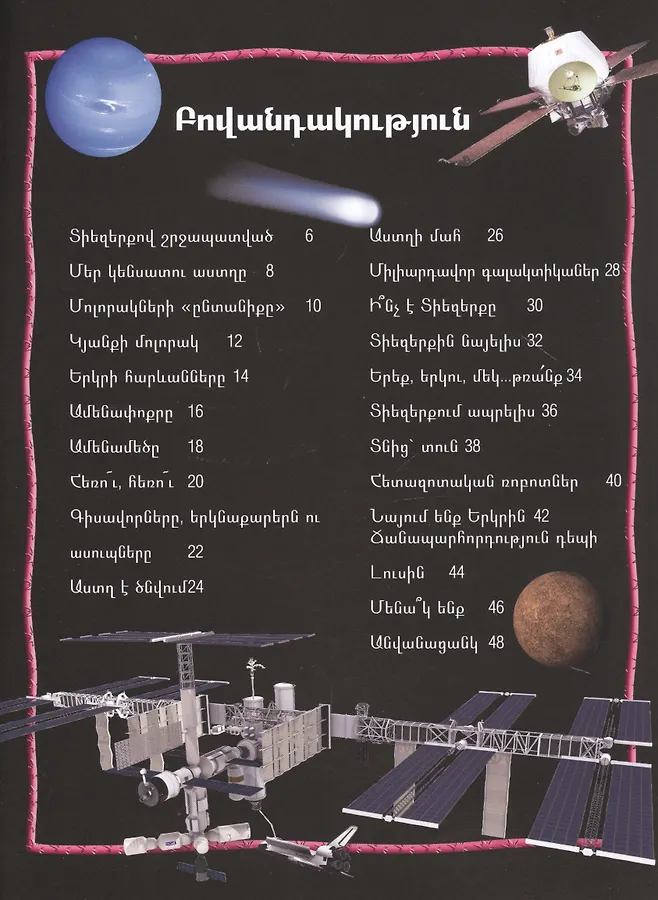 Բովանդակություն
Տիեզերքով շրջապատված 6
Մեր կենսատու աստղը 8
Մոլորակների «ընտանիքը» 10
Կյանքի մոլորակ 12
Երկրի հարևանները 14
Ամենափոքրը 16
Ամենամեծը 18
Հեռո՜ւ, հեռո՜ւ 20
Գիսավորները, երկնաքարերն ու
ասուպները 22
Աստղ է ծնվում24
Աստղի մահ 26
Միլիարդավոր գալակտիկաներ 28
Ի՞նչ է Տիեզերքը 30
Տիեզերքին նայելիս 32
Երեք, երկու, մեկ...թռա՛նք 34
Տիեզերքում ապրելիս 36
Տնից՝ տուն 38
Հետազոտական ռոբոտներ 40
Նայում ենք Երկրին 42
Ճանապարհորդություն դեպի
Լուսին 44
Մենա՞կ ենք 46
Անվանացանկ 48